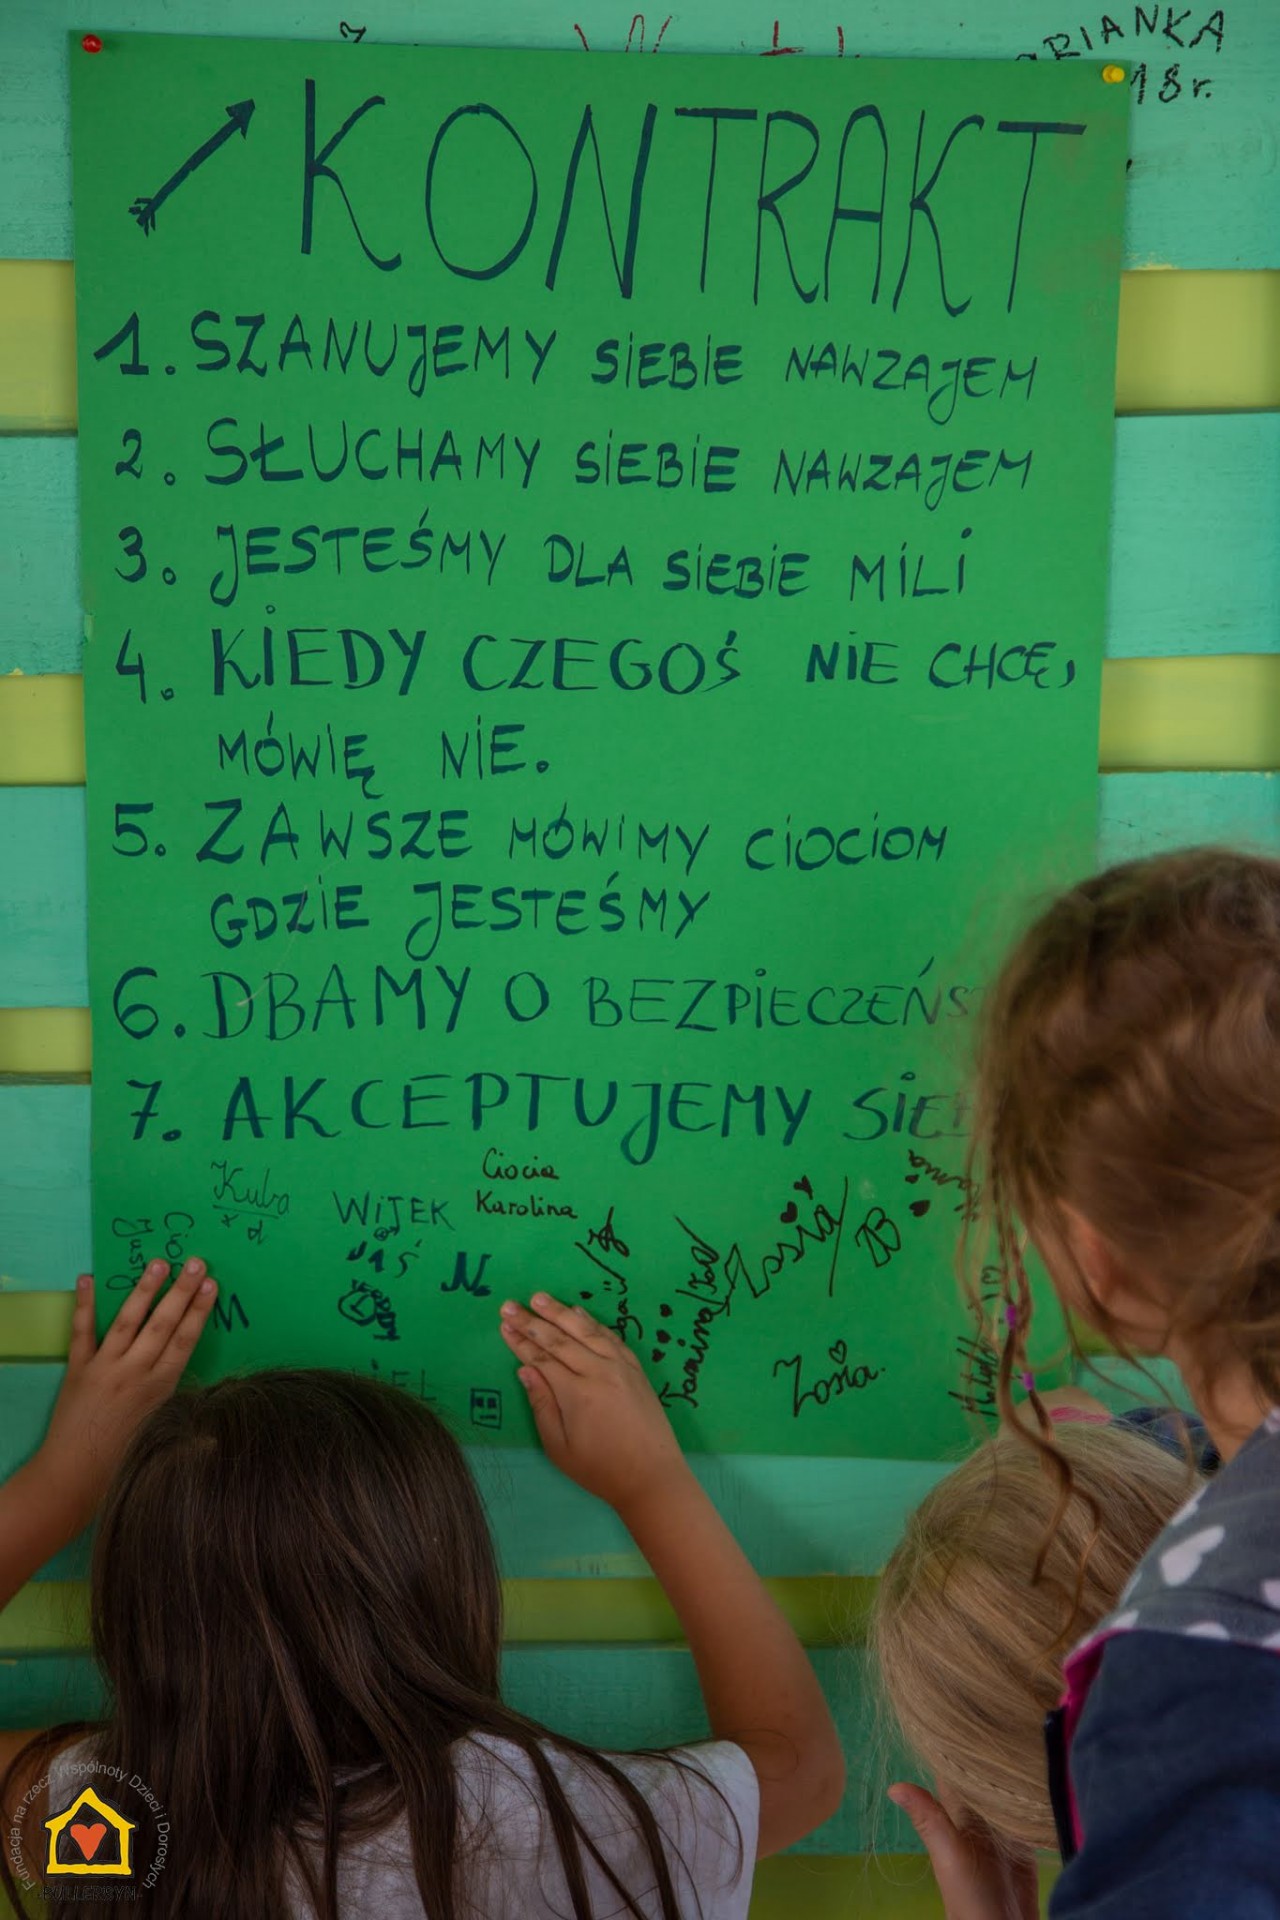 KONTRAKT
1. SZANUJEMY SIEBIE NAWZAJEM
2. SŁUCHAMY SIEBIE NAWZAJEM
3. JESTEŚMY DLA SIEBIE MILI
4. KIEDY CZEGOŚ NIE CHCĘ,
MÓWIĘ NIE.
5. ZAWSZE MÓWIMY CIOCIOM
GDZIE JESTEŚMY
6. DBAMY O BEZPIECZEŃST
7. AKCEPTUJEMY SIEB
Kuba
WiTEK
Ciocia
Karolina
JAŚ
N.
M
Zosia
Janina
Zosia.
18r.
Fundacja na rzecz Wspólnoty Dzieci i Dorosłych